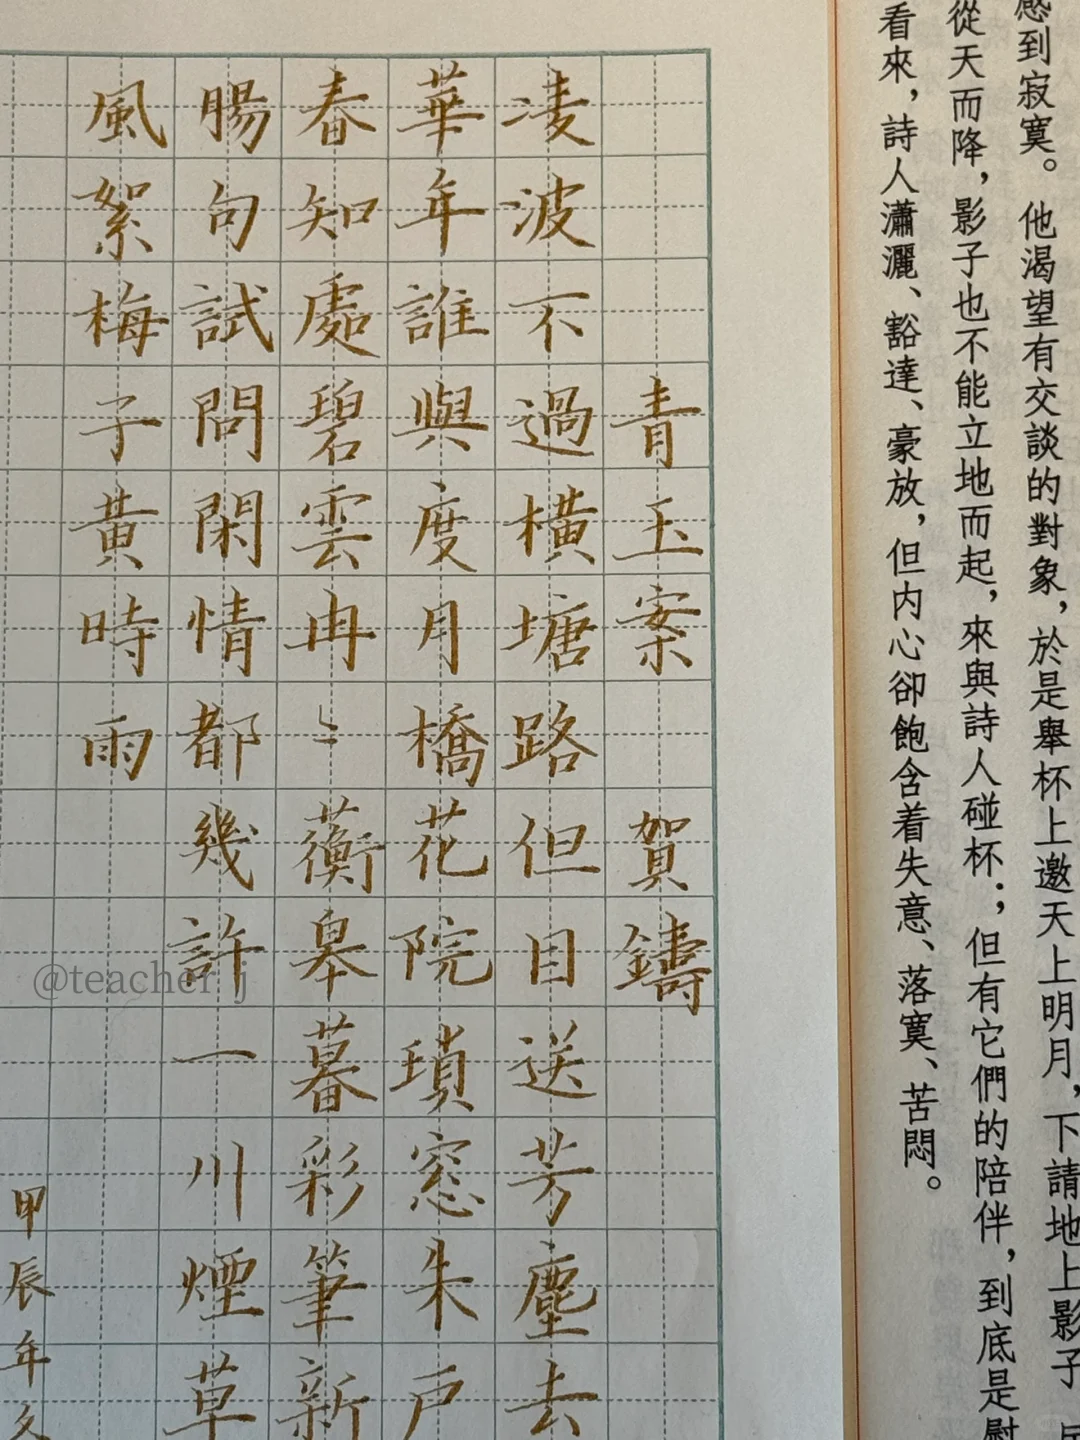 感到寂寞。他渴望有交談的對象，於是舉杯上邀天上明月，下請地上影子
從天而降，影子也不能立地而起，來與詩人碰杯；但有它們的陪伴，到底是慰
看來，詩人瀟灑、豁達、豪放，但内心卻飽含着失意、落寞、苦悶。
青玉案 賀鑄
凌波不過橫塘路但目送芳塵去
華年誰與度月橋花院瑣窓朱戶
春知處碧雲冉〻蘅皋暮彩筆新
腸句試問閑情都幾許一川煙草
風絮梅子黃時雨
甲辰年
@teacher j